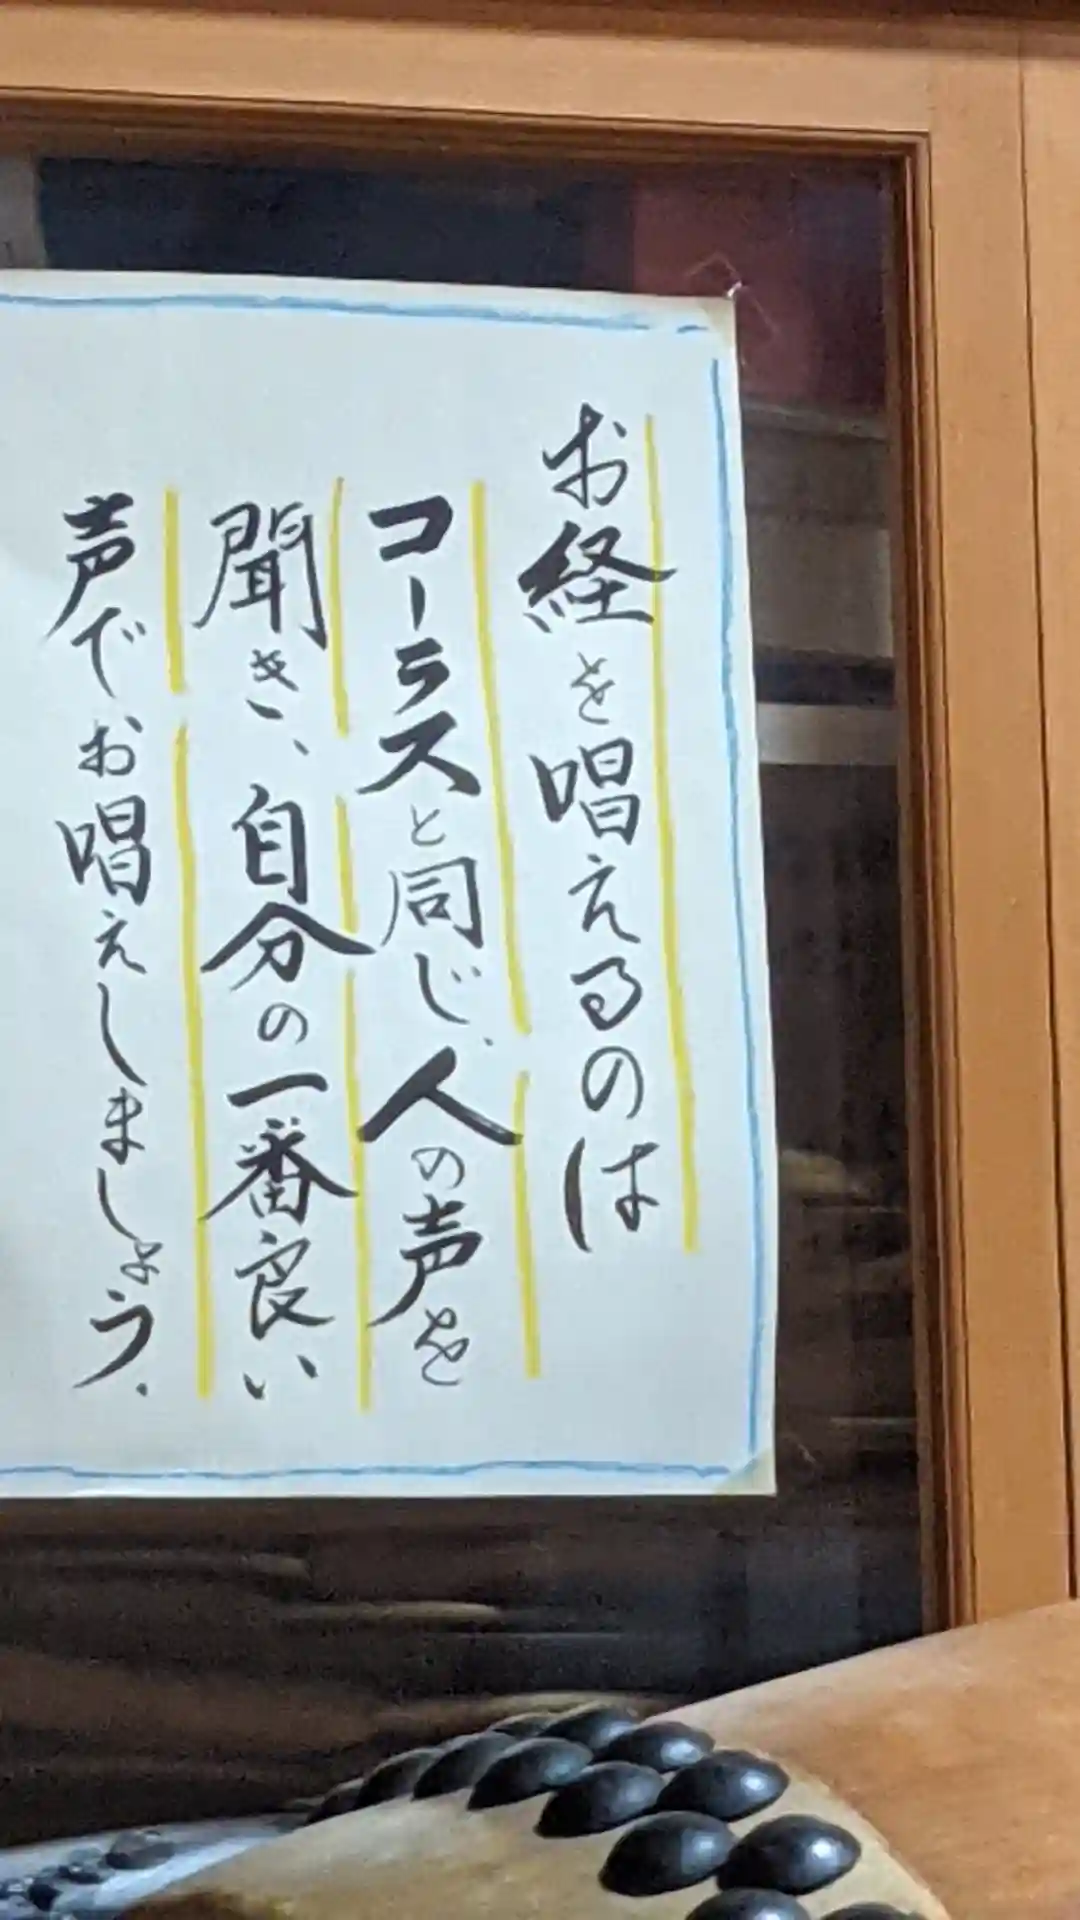 お経を唱えるのは
コーラスと同じ、人の声を
聞き、自分の一番良い
声でお唱えしましょう.